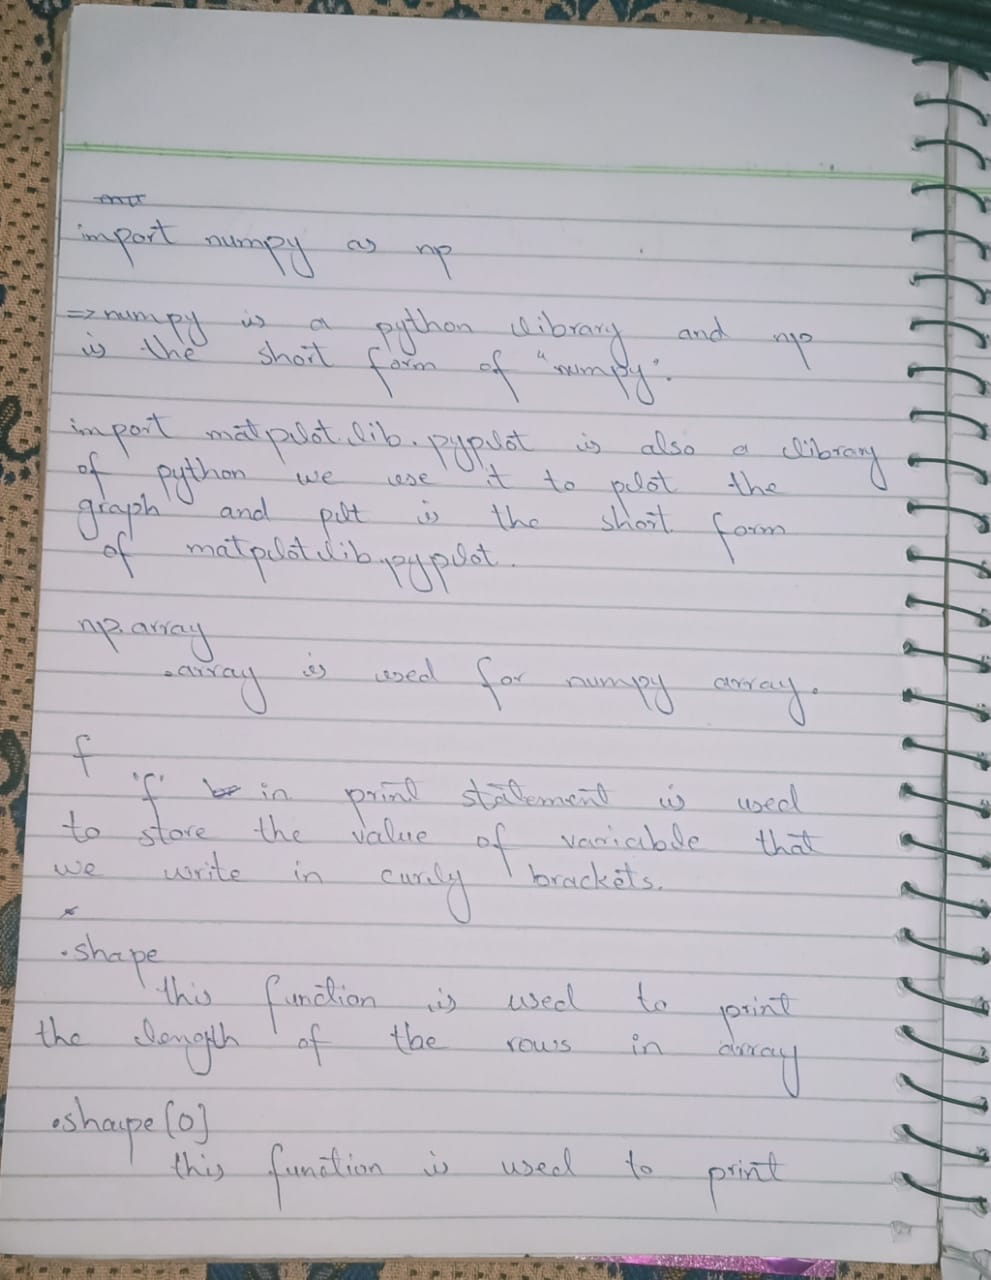 import numpy as np
=> numpy is a python library and np
is the short form of "numpy".
import matplotlib.pyplot is also a library
of python we use it to plot the
graph and plt is the short form
of matplotlib.pyplot.
np.array
.array is used for numpy array.
f
'f' in print statement is used
to store the value of variable that
we write in curly brackets.
.shape
this function is used to print
the length of the rows in array
.shape[0]
this function is used to print